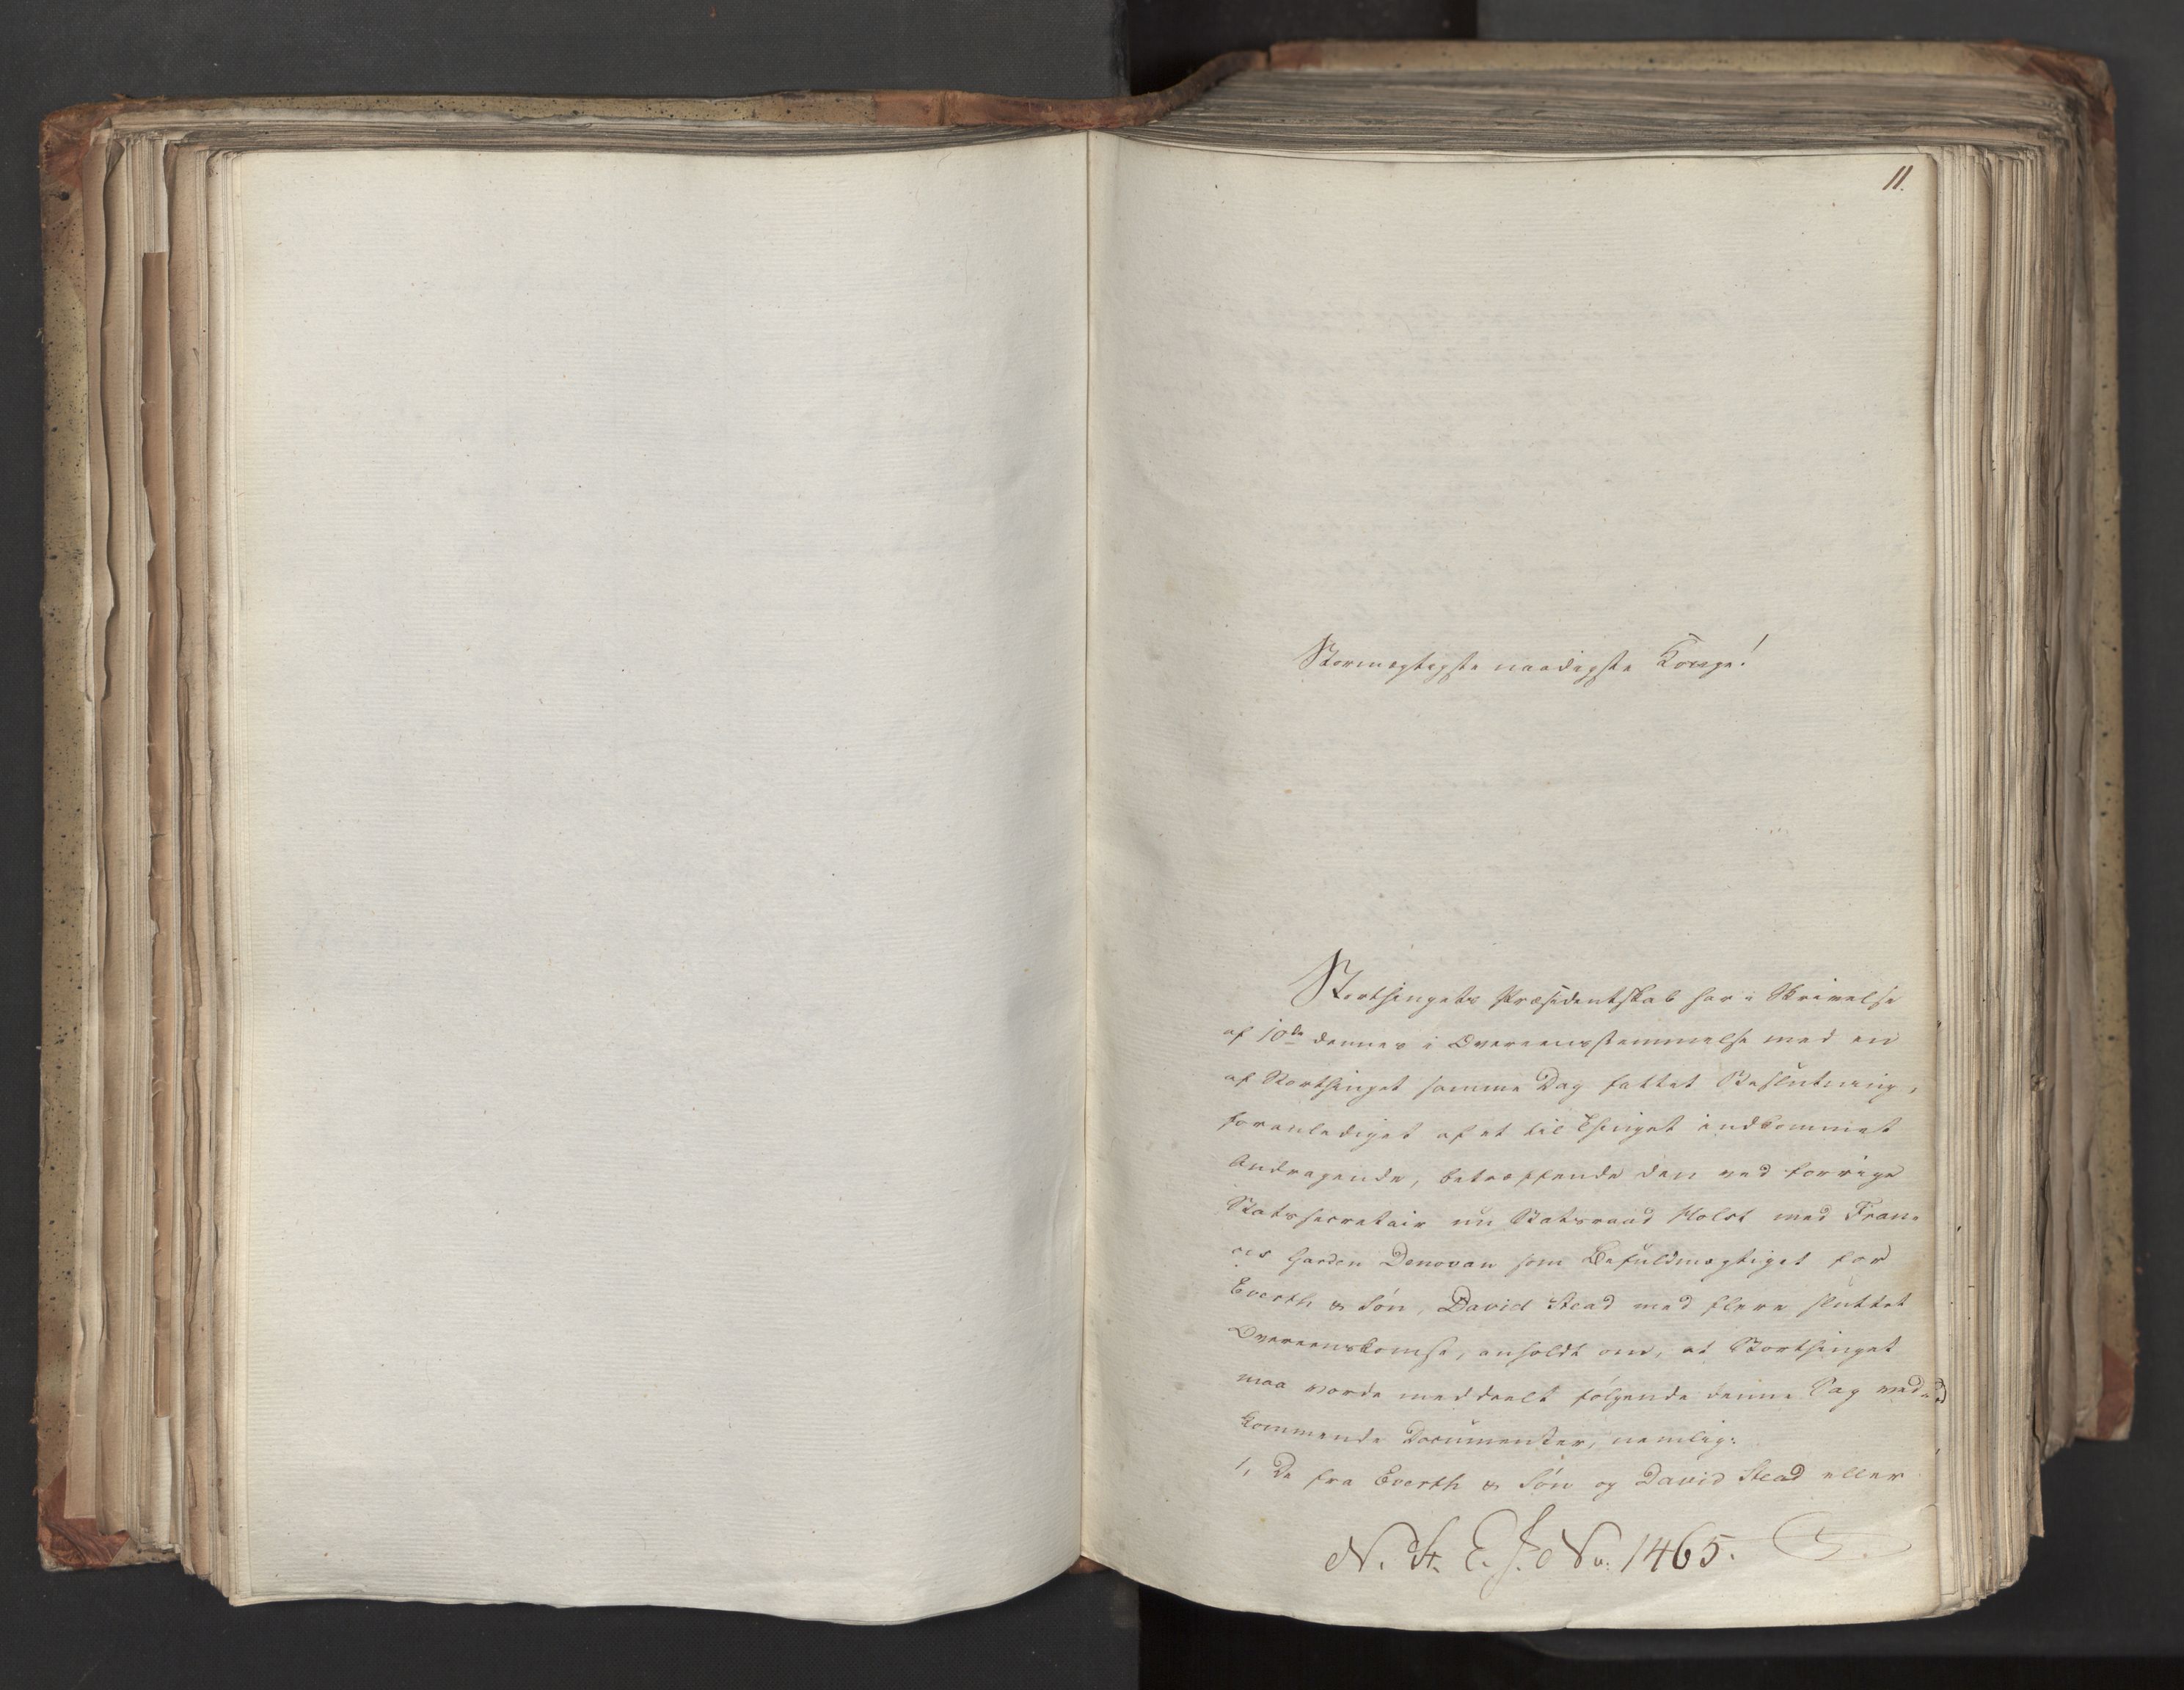 11.
Stormægtigste naadigste Konge!
Storthingets Præsidentskab har i Skrivelse
af 10de dennes i Overeensstemmelse med en
af Storthinget samme Dag fattet Beslutning,
foranlediget af et til Thinget indkommet
Andragende, betræffende den ved forrige
Statssecretair nu Statsraad Holst med Fran-
ces Garden Denovan som Befuldmægtiget for
Everth & Søn, David Stead med flere sluttet
Overeenskomst, anholdt om, at Storthinget
maa vorde meddeelt følgende denne Sag ved-
kommende Documenter, nemlig:
1, De fra Everth & Søn og David Stead eller
N. St. E. J. No. 1465.